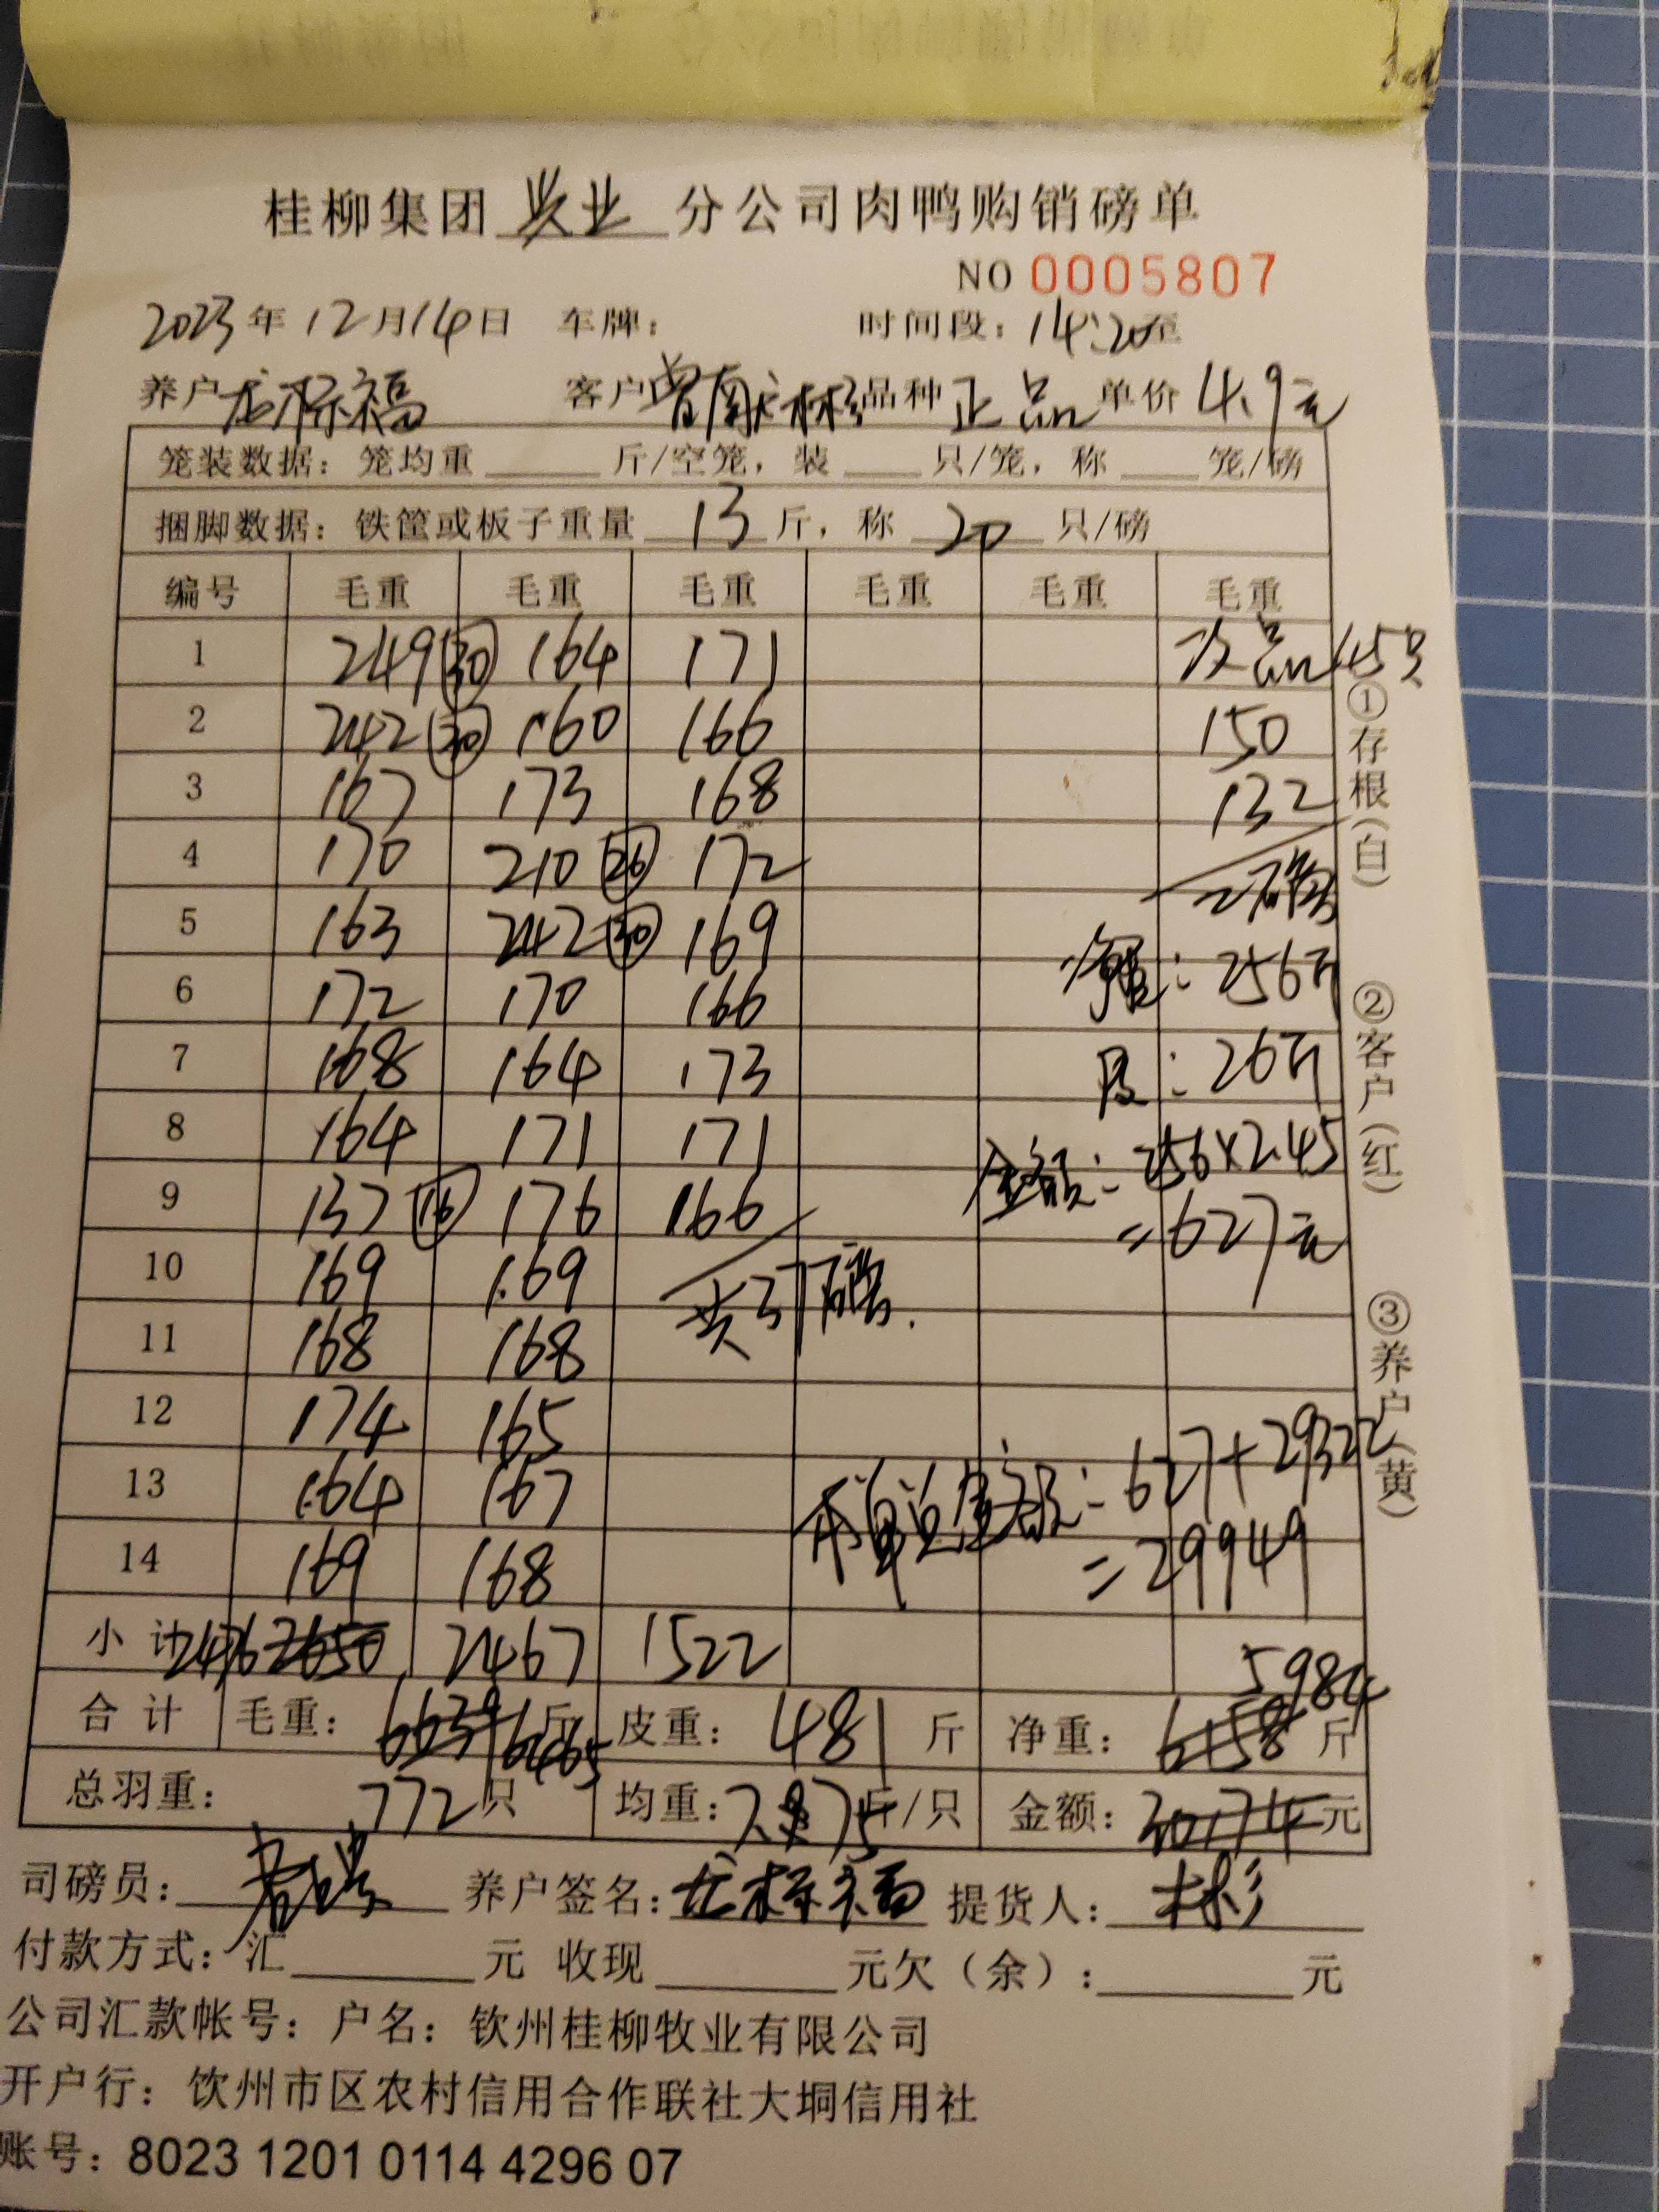 桂柳集团兴业分公司肉鸭购销磅单
NO 0005807
2023年12月14日 车牌: 时间段:14:20至
养户龙标福 客户曾 品种正品 单价4.9元
笼装数据:笼均重 斤/空笼,装 只/笼,称 笼/磅
捆脚数据:铁筐或板子重量 13 斤,称 20 只/磅
编号 毛重 毛重 毛重 毛重 毛重 毛重
1 249(30) 164 171 次品45只
2 242(30) 160 166 150
3 167 173 168 132
4 170 210(26) 172 2磅
5 163 242(30) 169 净重:256斤
6 172 170 166
7 168 164 173 皮:26斤
8 164 171 171 金额:256×2.45
9 137(16) 176 166 =627元
10 169 169 共37磅.
11 168 168
12 174 165
13 164 167 本单总金额:627+29322
14 169 168 =29949
小计 2476 2650 2467 1522
5984
合计 毛重:6639 6465斤 皮重:481斤 净重:6158斤
总羽重:772只 均重: 斤/只 金额:30174元
司磅员: 养户签名:龙标福 提货人:彬
付款方式:汇 元 收现 元欠(余): 元
公司汇款帐号:户名:钦州桂柳牧业有限公司
开户行:饮州市区农村信用合作联社大垌信用社
账号:8023 1201 0114 4296 07
①存根(白)
②客户(红)
③养户(黄)